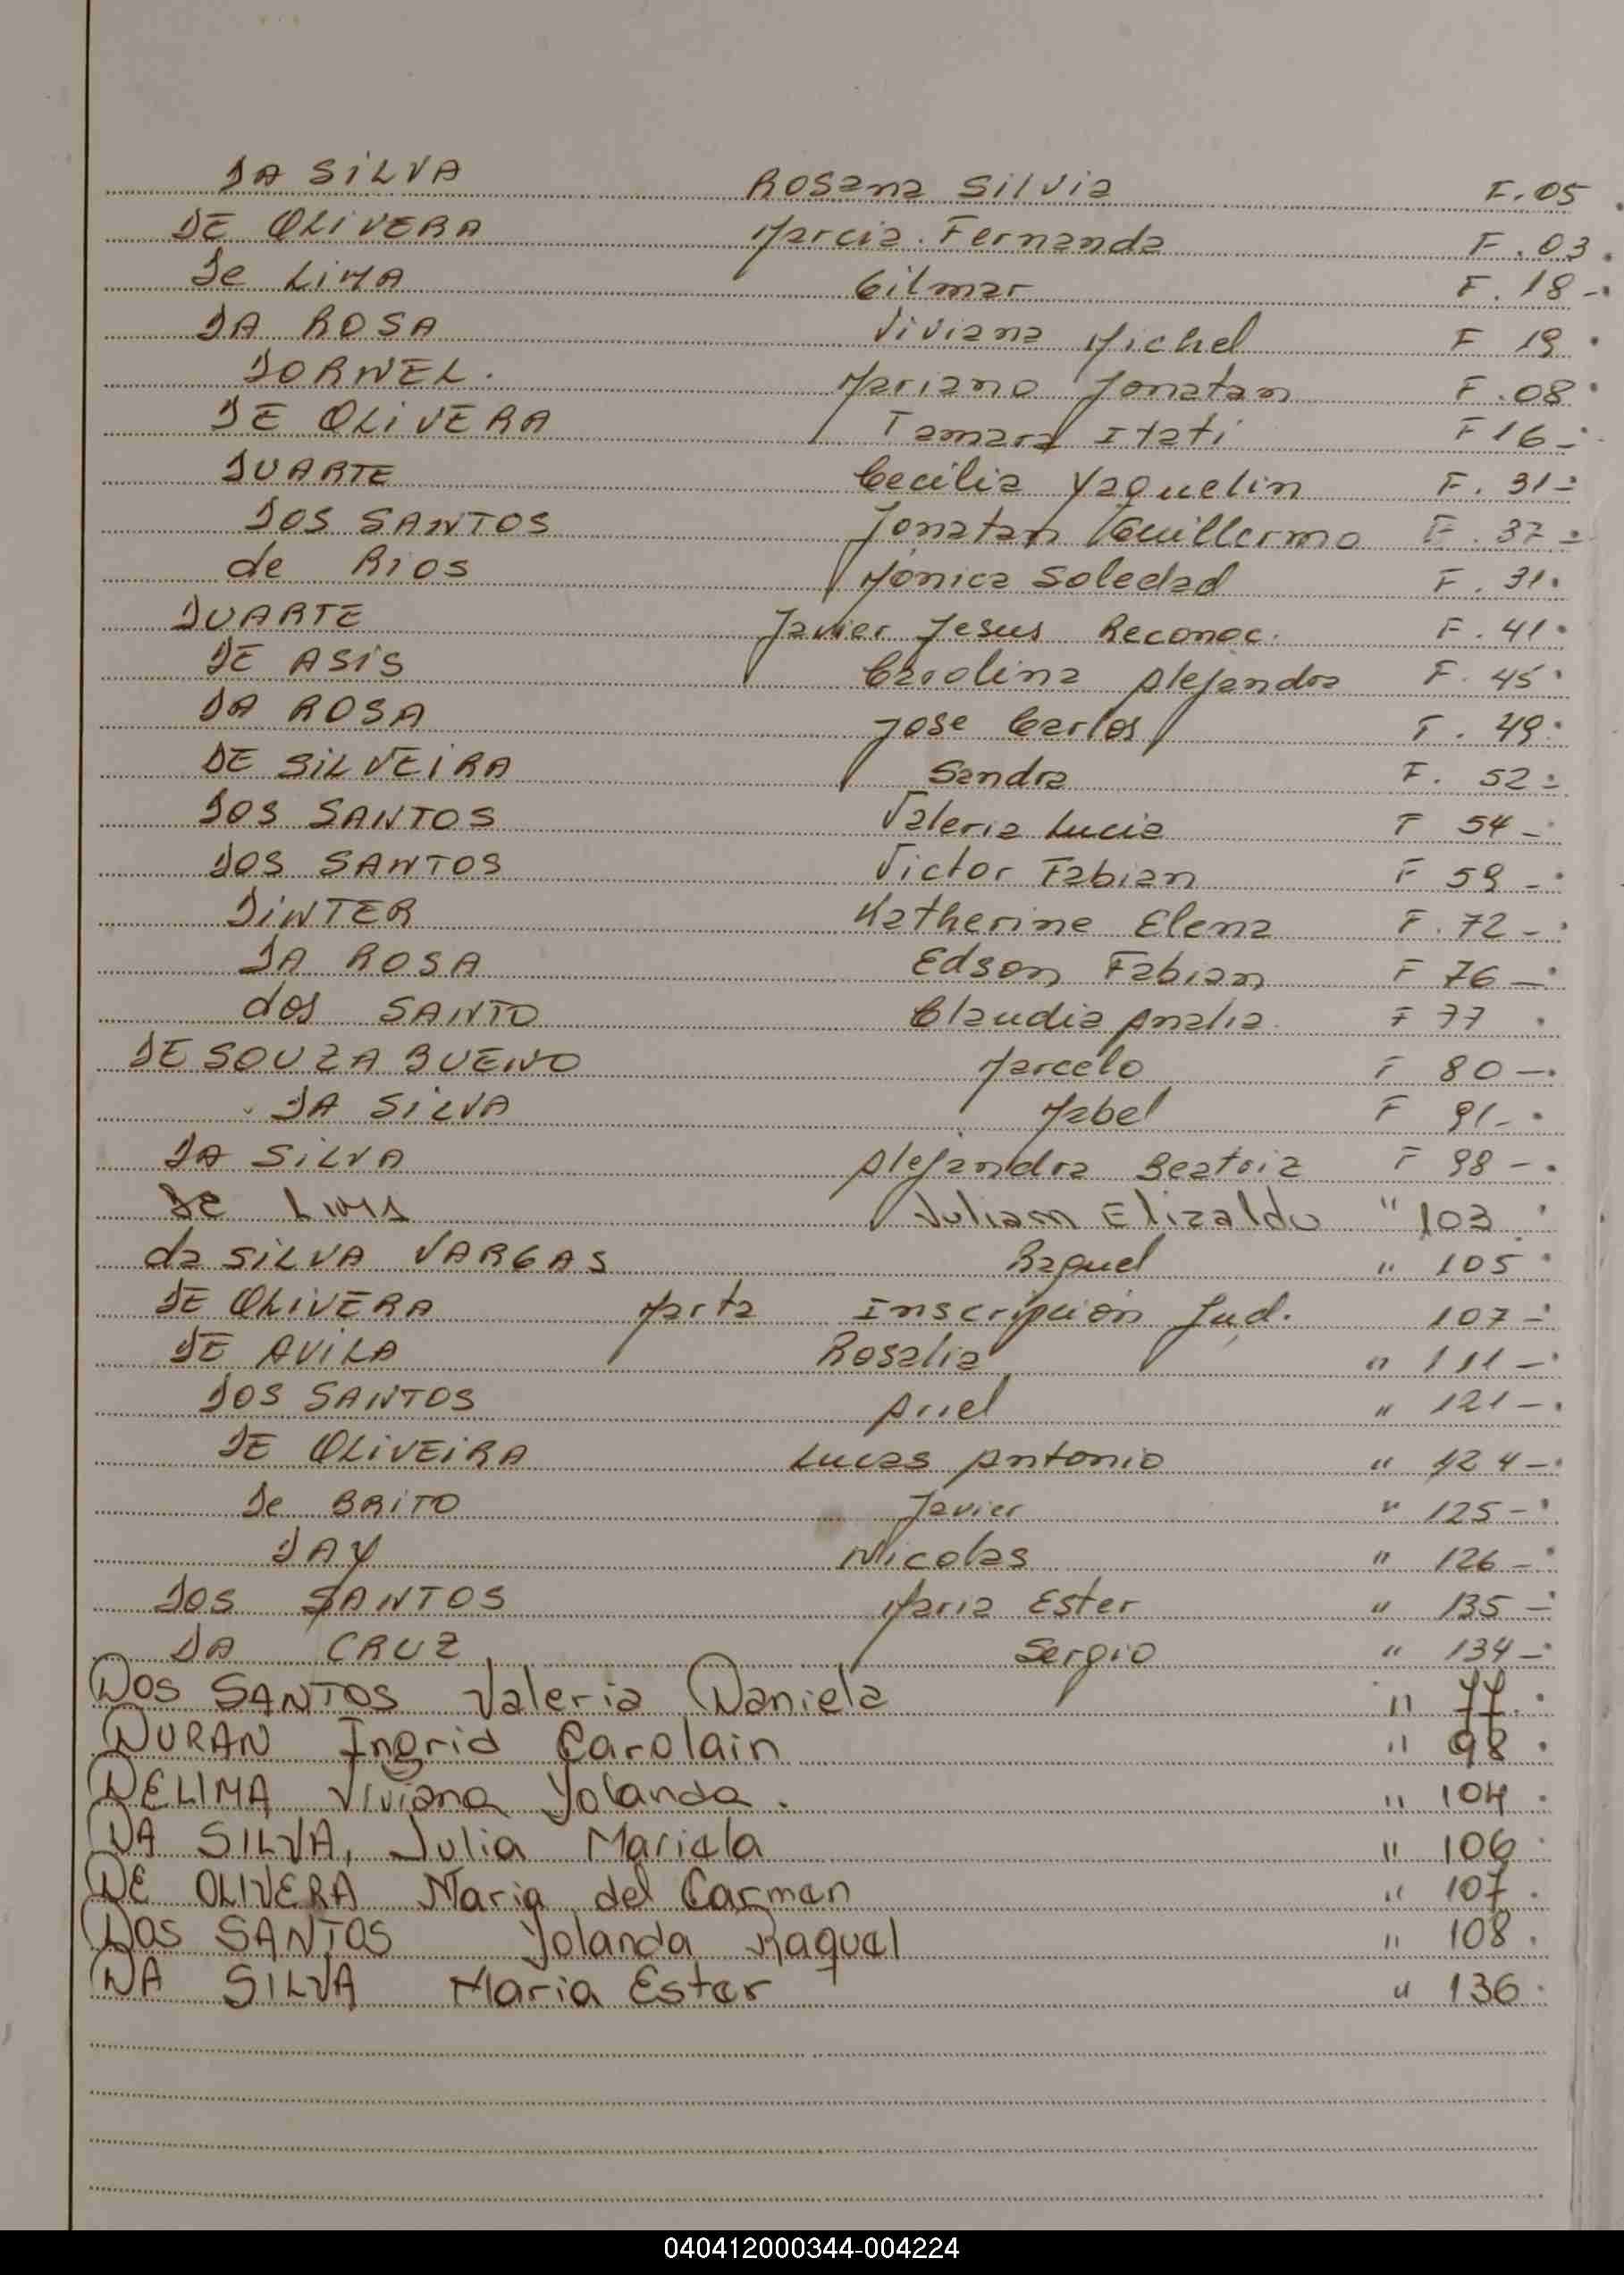 DA SILVA Rosana Silvia F. 05
DE OLIVERA Marcia Fernanda F. 03
De LIMA Gilmar F. 18 -
DA ROSA Viviana Michel F 19
DORNEL. Mariano Jonatan F. 08
DE OLIVERA Tamara Itati F 16 -
DUARTE Cecilia Yaquelin F. 31 -
DOS SANTOS Jonatan Guillermo F. 37 -
de RIOS Monica Soledad F. 31.
DUARTE Javier Jesus Reconoc. F. 41
DE ASIS Carolina Alejandra F. 45
DA ROSA Jose Carlos F. 49
DE SILVEIRA Sandra F. 52 -
DOS SANTOS Valeria Lucia F 54 -
DOS SANTOS Victor Fabian F 59 -
DINTER Katherine Elena F. 72 -
DA ROSA Edson Fabian F 76 -
dos SANTO Claudia Analia F 77
DE SOUZA BUENO Marcelo F 80 -
DA SILVA Mabel F 91 -
DA SILVA Alejandra Beatriz F 98 -
De LIMA Juliam Elizaldo " 103
da SILVA VARGAS Raquel " 105
DE OLIVERA Marta Inscripción Jud. 107 -
DE AVILA Rosalia " 111 -
DOS SANTOS Ariel " 121 -
DE OLIVEIRA Lucas Antonio " 124 -
De BRITO Javier " 125 -
DAY Nicolas " 126 -
DOS SANTOS Maria Ester " 135 -
DA CRUZ Sergio " 134 -
DOS SANTOS Valeria Daniela " 77.
DURAN Ingrid Carolain " 98.
DELIMA Viviana Yolanda. " 104.
DA SILVA, Julia Mariela " 106
DE OLIVERA Maria del Carmen " 107.
DOS SANTOS Yolanda Raquel " 108.
DA SILVA Maria Ester " 136.
040412000344-004224